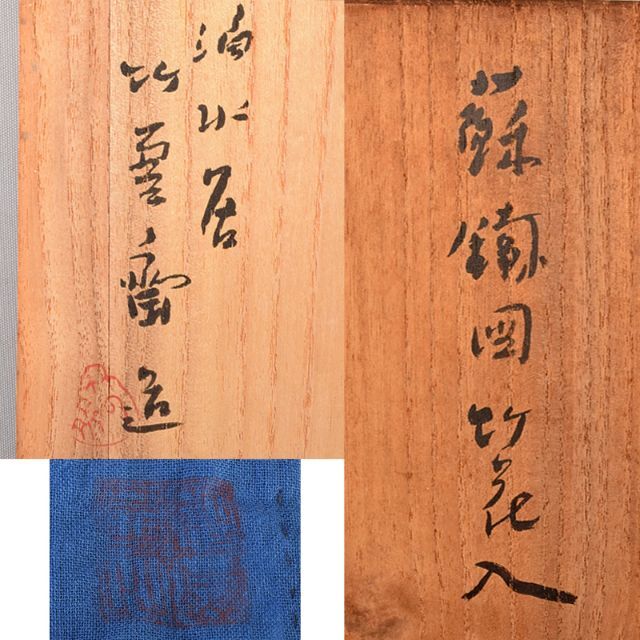 蘇鐵図竹花入
滴水居
竹雲斎造